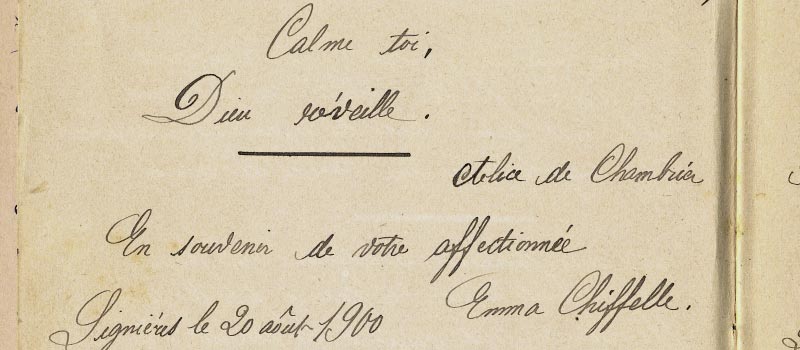 Calme toi,
Dieu réveille.
Alice de Chambrier
En souvenir de votre affectionnée
Emma Chiffelle.
Lignières le 20 août 1900